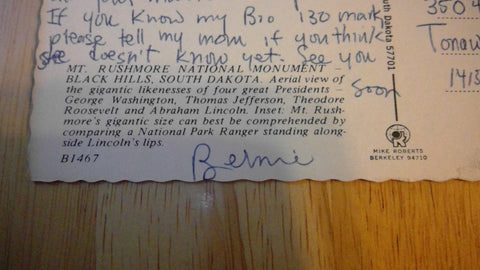 If you know my Bio 130 mark
please tell my mom if you think
she doesn't know yet. See you
soon
MT. RUSHMORE NATIONAL MONUMENT
BLACK HILLS, SOUTH DAKOTA. Aerial view of
the gigantic likenesses of four great Presidents –
George Washington, Thomas Jefferson, Theodore
Roosevelt and Abraham Lincoln. Inset: Mt. Rush-
more's gigantic size can best be comprehended by
comparing a National Park Ranger standing along-
side Lincoln's lips.
B1467
Bernie
Dakota 57701
MIKE ROBERTS
BERKELEY 94710
3504
Tonaw
141